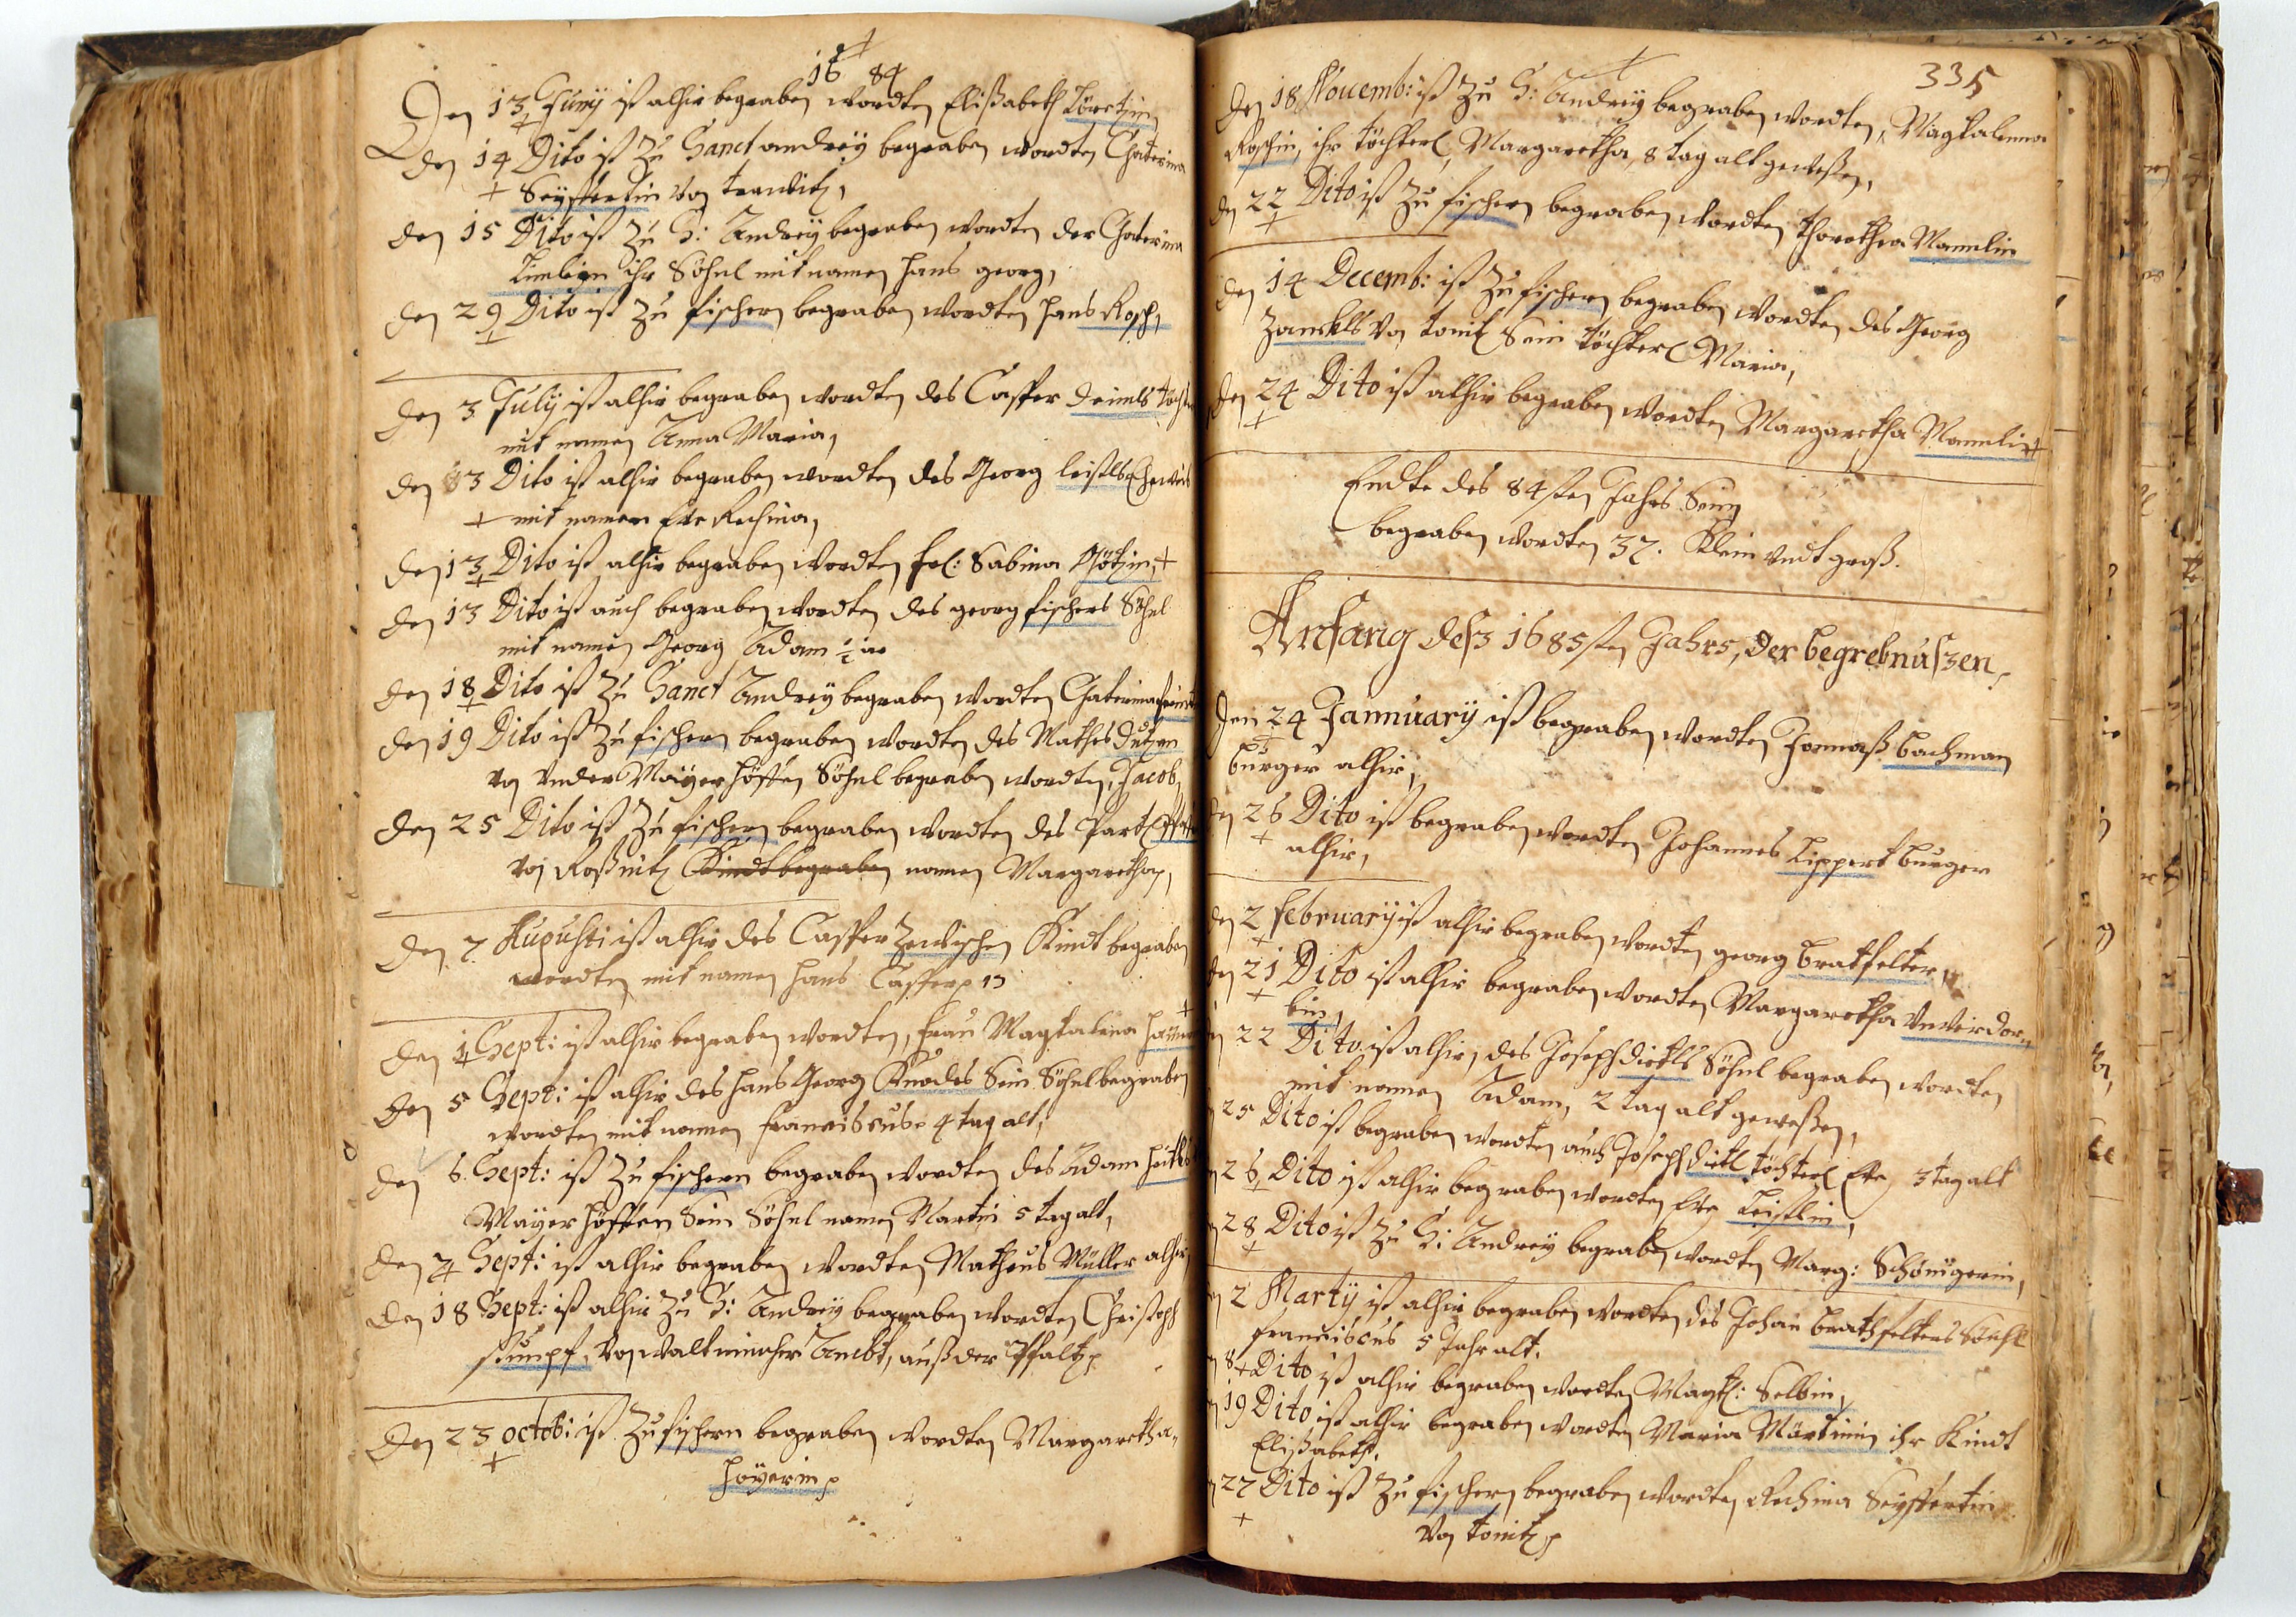 16 84
Den 13 Junij ist alhir begraben wordten Elisabeth
den 14 Dito ist Zu Sanct andrej begraben wordten Chaterina
Seyffertin von
den 15 Dito ist Zu S: Andrej begraben wordten der Chaterina
ihr Söhnl mit namen hans georg,
den 29 Dito ist Zu fischern begraben wordten hans Rosch,
den 3 Julij ist alhir begraben wordten des Casper
mit namen Anna Maria,
den 13 Dito ist alhir begraben wordten des Georg leistls Eheweib
mit namen Eva Rechina,
den 13 Dito ist alhir begraben wordten Sabina Götzin,
den 13 Dito ist auch begraben wordten des georg fischers Söhnl
mit namen Georg Adam
den 18 Dito ist Zu Sanct Andrej begraben wordten Chaterina
den 19 Dito ist Zu fischern begraben wordten des Mathes
von Vnder Mayerhöffen Söhnl begraben wordten, Jacob,
den 25 Dito ist Zu fischern begraben wordten des
von Roßnitz Kindt begraben namen Margaretha,
den 7 Augusti ist alhir des Casper Kindt begraben
wordten mit namen hans Casper
den 1 Sept: ist alhir begraben wordten, frau Magtalena
den 5 Sept: ist alhir des hans Georg Knodes Sein Söhnl begraben
wordten mit namen franciscus 4 tag alt,
den 6. Sept: ist Zu fischern begraben wordten des Adam
Mayerhöffen Sein Söhnl namen Martin 5 tag alt,
den 7 Sept: ist alhir begraben wordten Matheus Müller alhir,
den 18 Sept: ist alhir Zu S: Andrej begraben wordten Christoph
Stumpf, von Ambt, auß der Pfaltz
Den 23 octob: ist Zu fischern begraben wordten Margaretha
höyerin
335
den 18 Nouemb: ist Zu S: Andrej begraben wordten, Magtalenna
Roschin, ihr töchterl, Margaretha, 8 tag alt geweßen,
den 22 Dito ist Zu fischern begraben wordten Thorethea Mannlin
den 14 Decemb: ist Zu fischern begraben wordten des Georg
von Sein töchterl Maria,
den 24 Dito ist alhir begraben wordten Margaretha Mannlin
Endte des 84sten Jahrs Sein
begraben wordten 37. Klein vndt groß.
Anfang deß 1685sten Jahrs, der begrebnußen,
den 24 Jannuarij ist begraben wordten bachman
burger alhir,
den 26 Dito ist begraben wordten Johannes Lippert burger
alhir,
den 2 februarij ist alhir begraben wordten georg bratfelter,
den 21 Dito ist alhir begraben wordten Margaretha
22 Dito ist alhir, des Joseph dietls Söhnl begraben wordten
mit namen Adam, 2 tag alt geweßen,
25 Dito ist begraben wordten auch Joseph dietl töchterl Eva, 3 tag alt
26 Dito ist alhir begraben wordten Eva Leistlin,
28 Dito ist Zu S: Andrej begraben wordten Marg: Schönigerin,
2 Martij ist alhir begraben wordten des Johan brathfelters Söhnl
franciscus 5 Jahr alt.
8 Dito ist alhir begraben wordten Magt: Selbin,
19 Dito ist alhir begraben wordten Maria Märtinin ihr Kindt
Elisabeth.
27 Dito ist Zu fischern begraben wordten Rechina Seyffertin
von